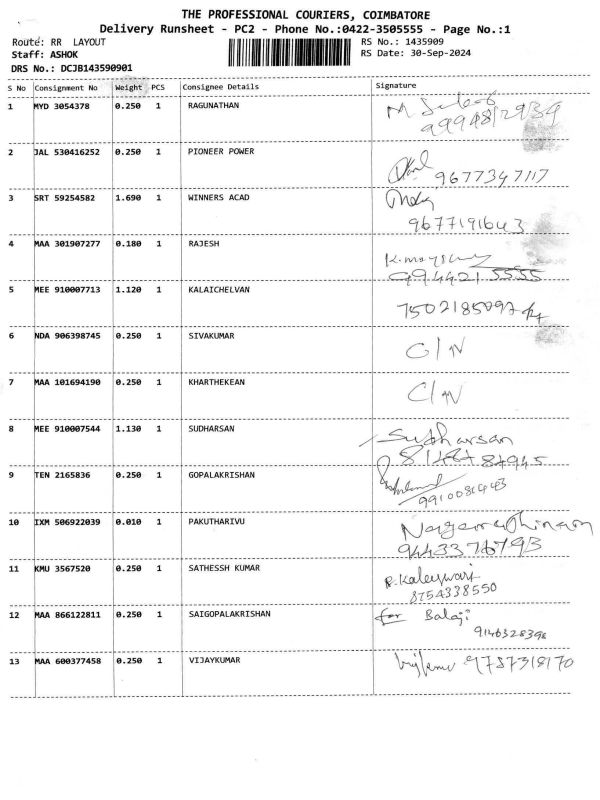 THE PROFESSIONAL COURIERS, COIMBATORE
Delivery Runsheet - PC2 - Phone No.:0422-3505555 - Page No.:1
Route: RR LAYOUT RS No.: 1435909
Staff: ASHOK RS Date: 30-Sep-2024
DRS No.: DCJB143590901
S No Consignment No Weight PCS Consignee Details Signature
1 MYD 3054378 0.250 1 RAGUNATHAN
2 JAL 530416252 0.250 1 PIONEER POWER
9677347117
3 SRT 59254582 1.690 1 WINNERS ACAD
9677191643
4 MAA 301907277 0.180 1 RAJESH
994421 5555
5 MEE 910007713 1.120 1 KALAICHELVAN
7502185097
6 NDA 906398745 0.250 1 SIVAKUMAR
7 MAA 101694190 0.250 1 KHARTHEKEAN
8 MEE 910007544 1.130 1 SUDHARSAN Sudharsan
9 TEN 2165836 0.250 1 GOPALAKRISHAN
10 IXM 506922039 0.010 1 PAKUTHARIVU
11 KMU 3567520 0.250 1 SATHESSH KUMAR R.Kaleeswari
8754338550
12 MAA 866122811 0.250 1 SAIGOPALAKRISHAN for Balaji
9146328398
13 MAA 600377458 0.250 1 VIJAYKUMAR 9787318170